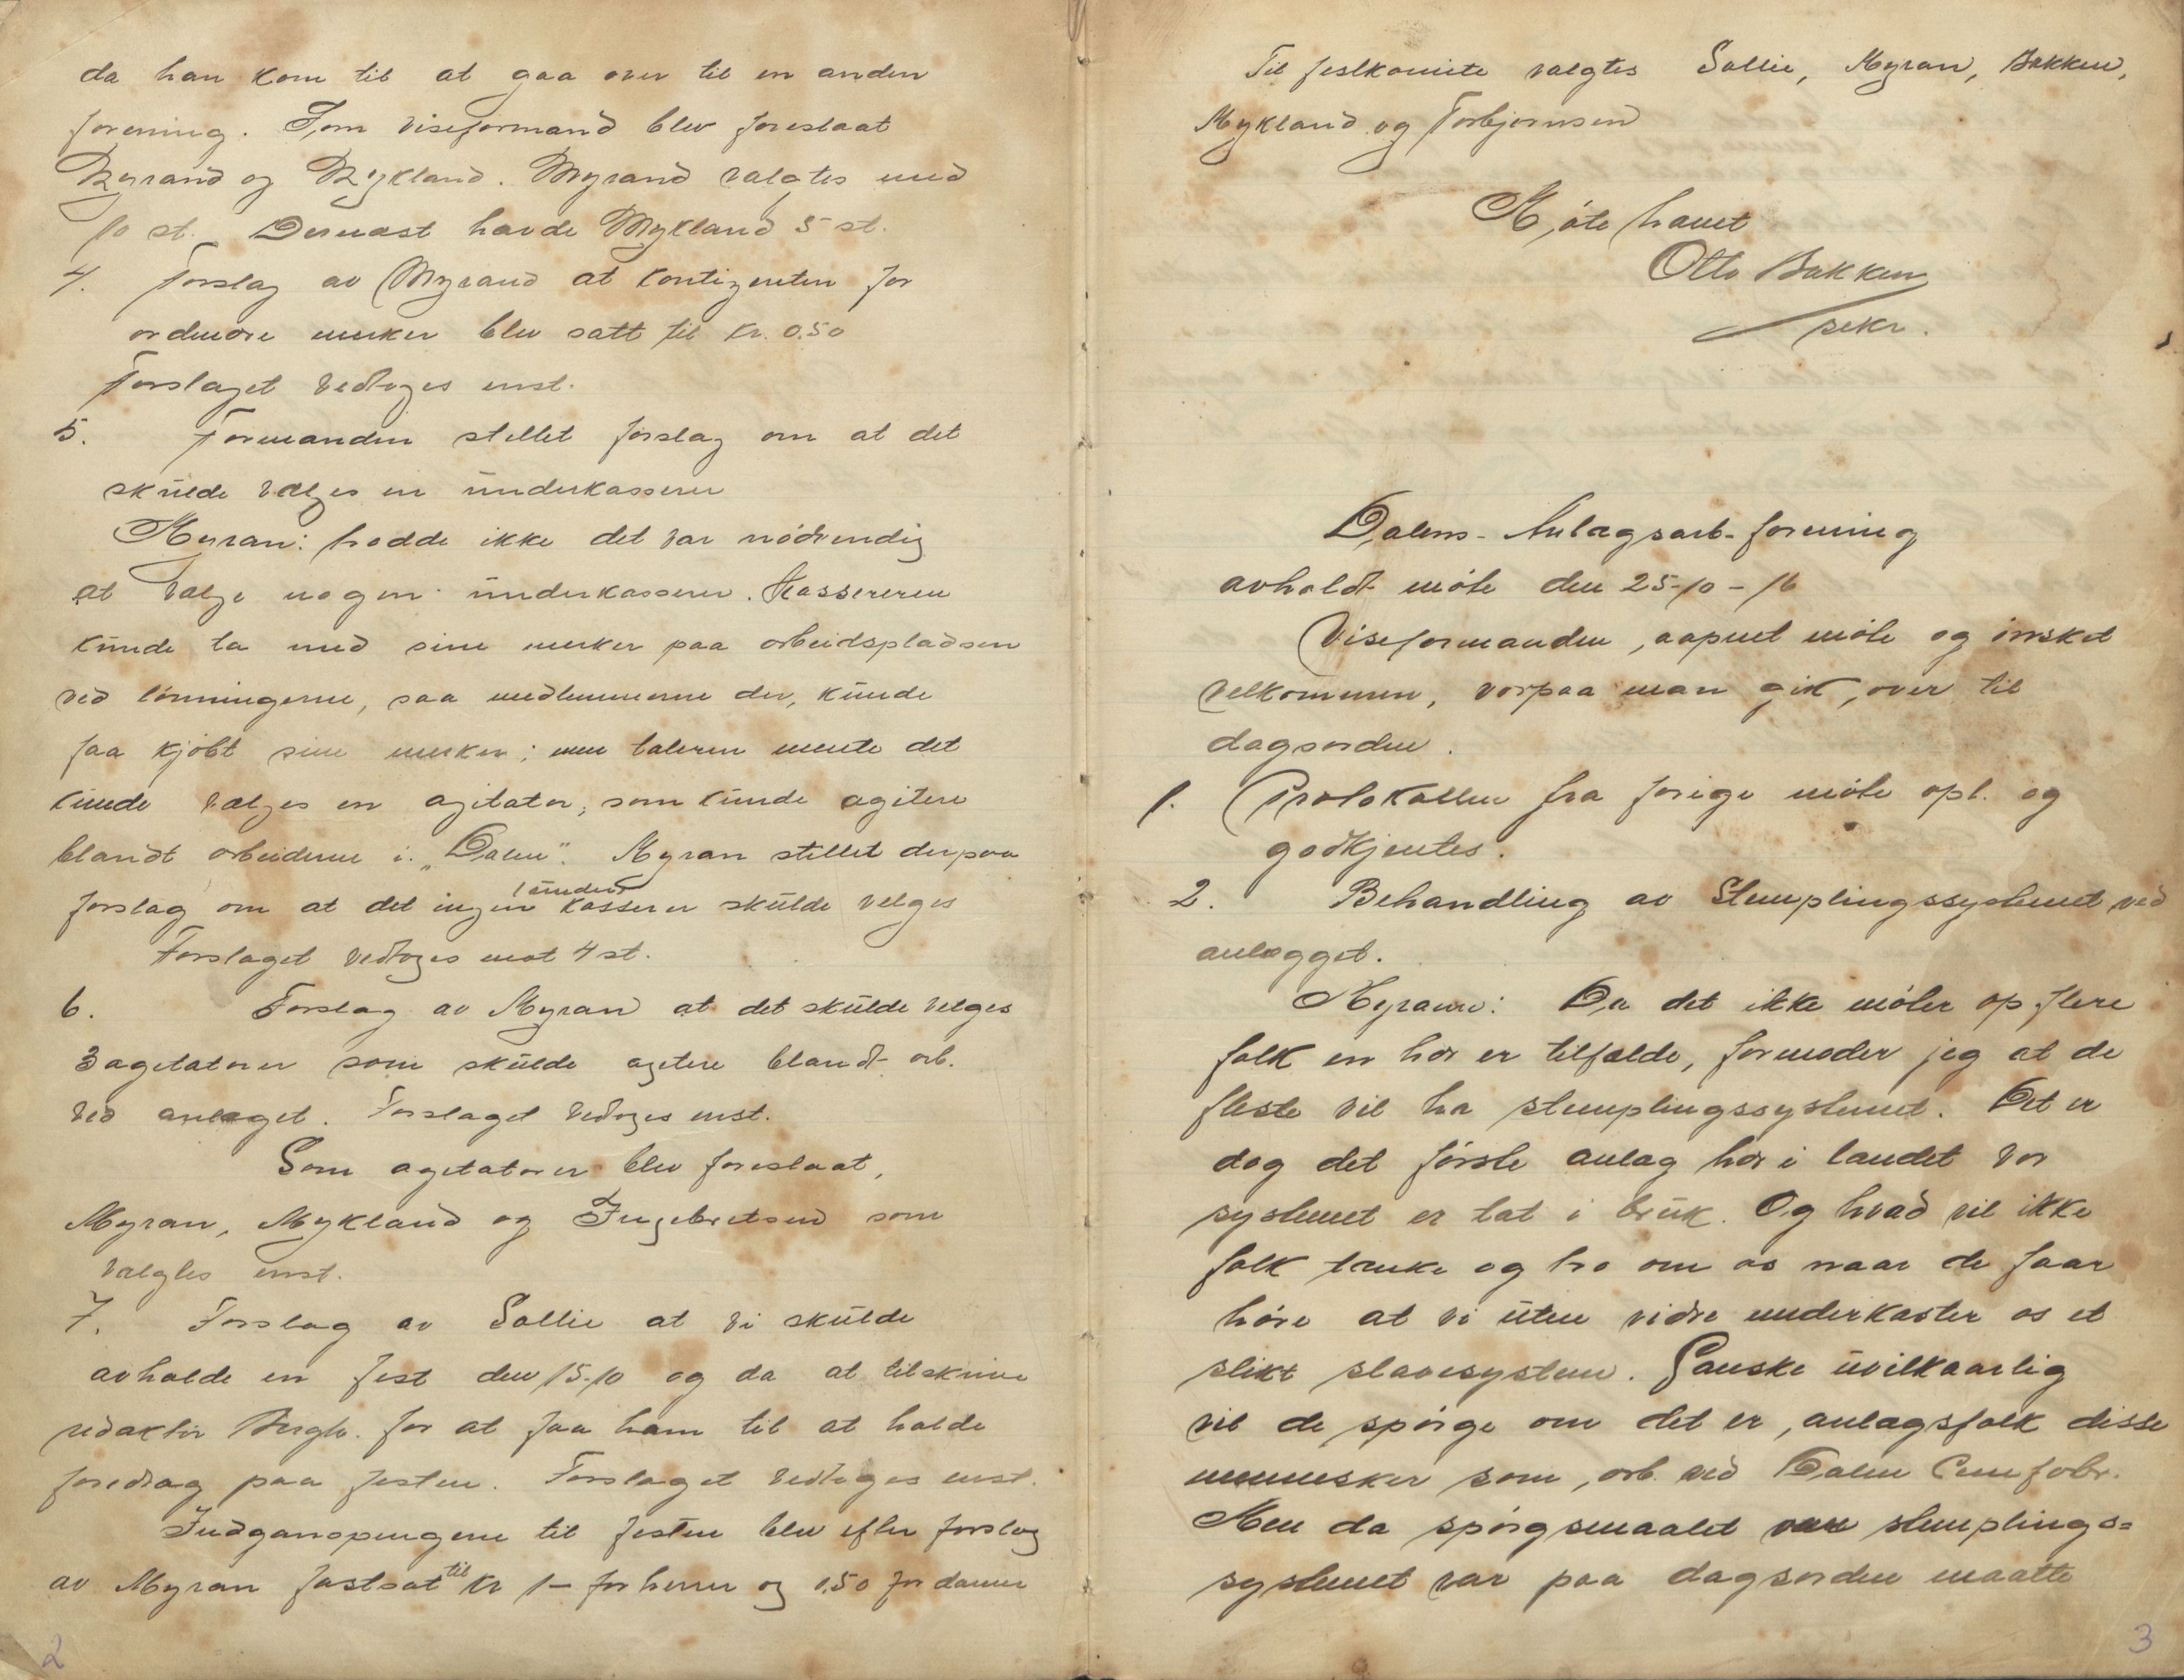 da han kom til at gaa over til en anden
forening. Som viseformand blev foreslaat
Myrand og Mykland. Myrand valgtes med
10 st. Dernæst havde Mykland 5 st.
4. Forslag av Myrand at kontigenten for
ordinære merker blev satt til kr. 0.50
Forslaget vedtoges enst.
5. Formanden stellet forslag om at det
skulde vælges en underkasserer
Myran: trodde ikke det var nødvendig
at vælge nogen underkasserer. Kassereren
kunde ta med sine merker paa arbeidspladsen
ved lønningerne, saa medlemmerne der, kunde
faa kjøbt sine merker; men taleren mente det
kunde vælges en agitator, som kunde agitere
blandt arbeiderne i „Dalen". Myran stillet derpaa
forslag om at det ingen under kasserer skulde velges
Forslaget vedtoges mot 4 st.
6. Forslag av Myran at det skulde velges
3 agetatorer som skulde agetere blandt arb.
ved anlæget. Forslaget vedtoges enst.
Som agetatorer blev foreslaat,
Myran, Mykland og Ingebretsen som
valgtes enst.
7. Forslag av Sollie at vi skulde
avholde en fest den 15-10 og da at tilskrive
redaktør Bergh. for at faa ham til at holde
foredrag paa festen. Forslaget vedtoges enst.
Indganspengene til festen blev efter forslag
av Myran fastsat til kr 1- for herrer og 0,50 for damer
2
Til festkomite valgtes Sollie, Myran, Bakken,
Mykland og Torbjørnsen
Møte hævet
Otto Bakken
sekr.
Dalens-Anlægsarb-forening
avholdt møte den 25-10-16
Viseformanden, aapnet møte og ønsket
velkommen, vorpaa man gik, over til
dagsorden.
1. Protokollen fra forige møte opl. og
godkjentes.
2. Behandling av Stemplingssystemet ved
anlægget.
Myran: Da det ikke møter op flere
folk en her er tilfælde, formoder jeg at de
fleste vil ha stemplingssystemet. Det er
dog det første anlæg her i landet vor
systemet er tat i bruk. Og hvad vil ikke
folk tænke og tro om os naar de faar
høre at vi uten vidre underkaster os et
slikt slavesystem. Ganske uvilkaarlig
vil de spørge om det er, anlægsfolk disse
mennesker som, arb. ved Dalen Cemfabr.
Men da spørgsmaalet var stemplings=
systemet var paa dagsorden maatte
3